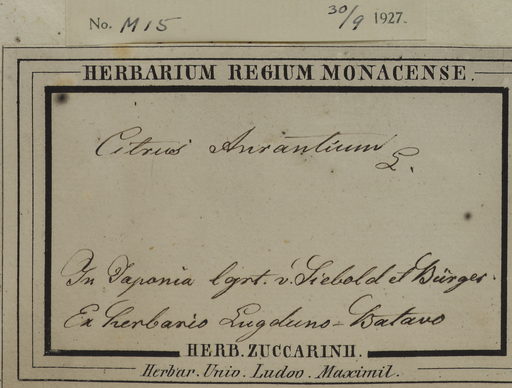 No. M15 30/9 1927.
HERBARIUM REGIUM MONACENSE.
Citrus Aurantium L.
In Japonia lgrt. v. Siebold et Bürger.
Ex herbario Lugduno-Batavo
HERB. ZUCCARINII.
Herbar. Univ. Ludov. Maximil.